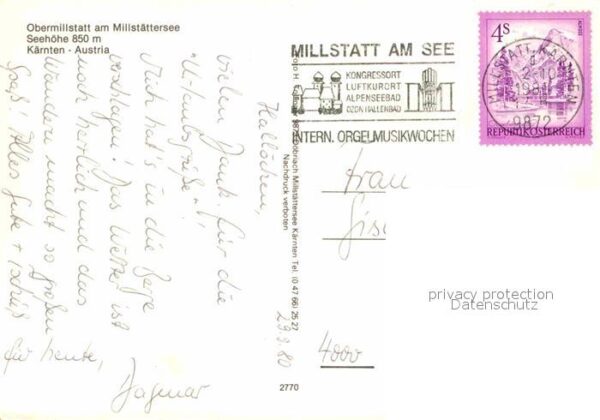 Obermillstatt am Millstättersee
Seehöhe 850 m
Kärnten - Austria
29.9.80
Hallöchen,
vielen Dank für die
"Urlaubsgrüße".
Mich hat's in die Berge
verschlagen! Das Wetter ist
noch herrlich und das
Wandern macht so großen
Spaß! Alles Gute + tschüß
für heute,
Dagmar
MILLSTATT AM SEE
KONGRESSORT
LUFTKURORT
ALPENSEEBAD
OZON HALLENBAD
INTERN. ORGELMUSIKWOCHEN
4S
REPUBLIK ÖSTERREICH
MILLSTATT, KÄRNTEN
9872
Döbriach Millstättersee Kärnten Tel. (0 47 66) 25 22
Nachdruck verboten
Frau
4000
2770
privacy protection
www.ansichtskartenversand.com